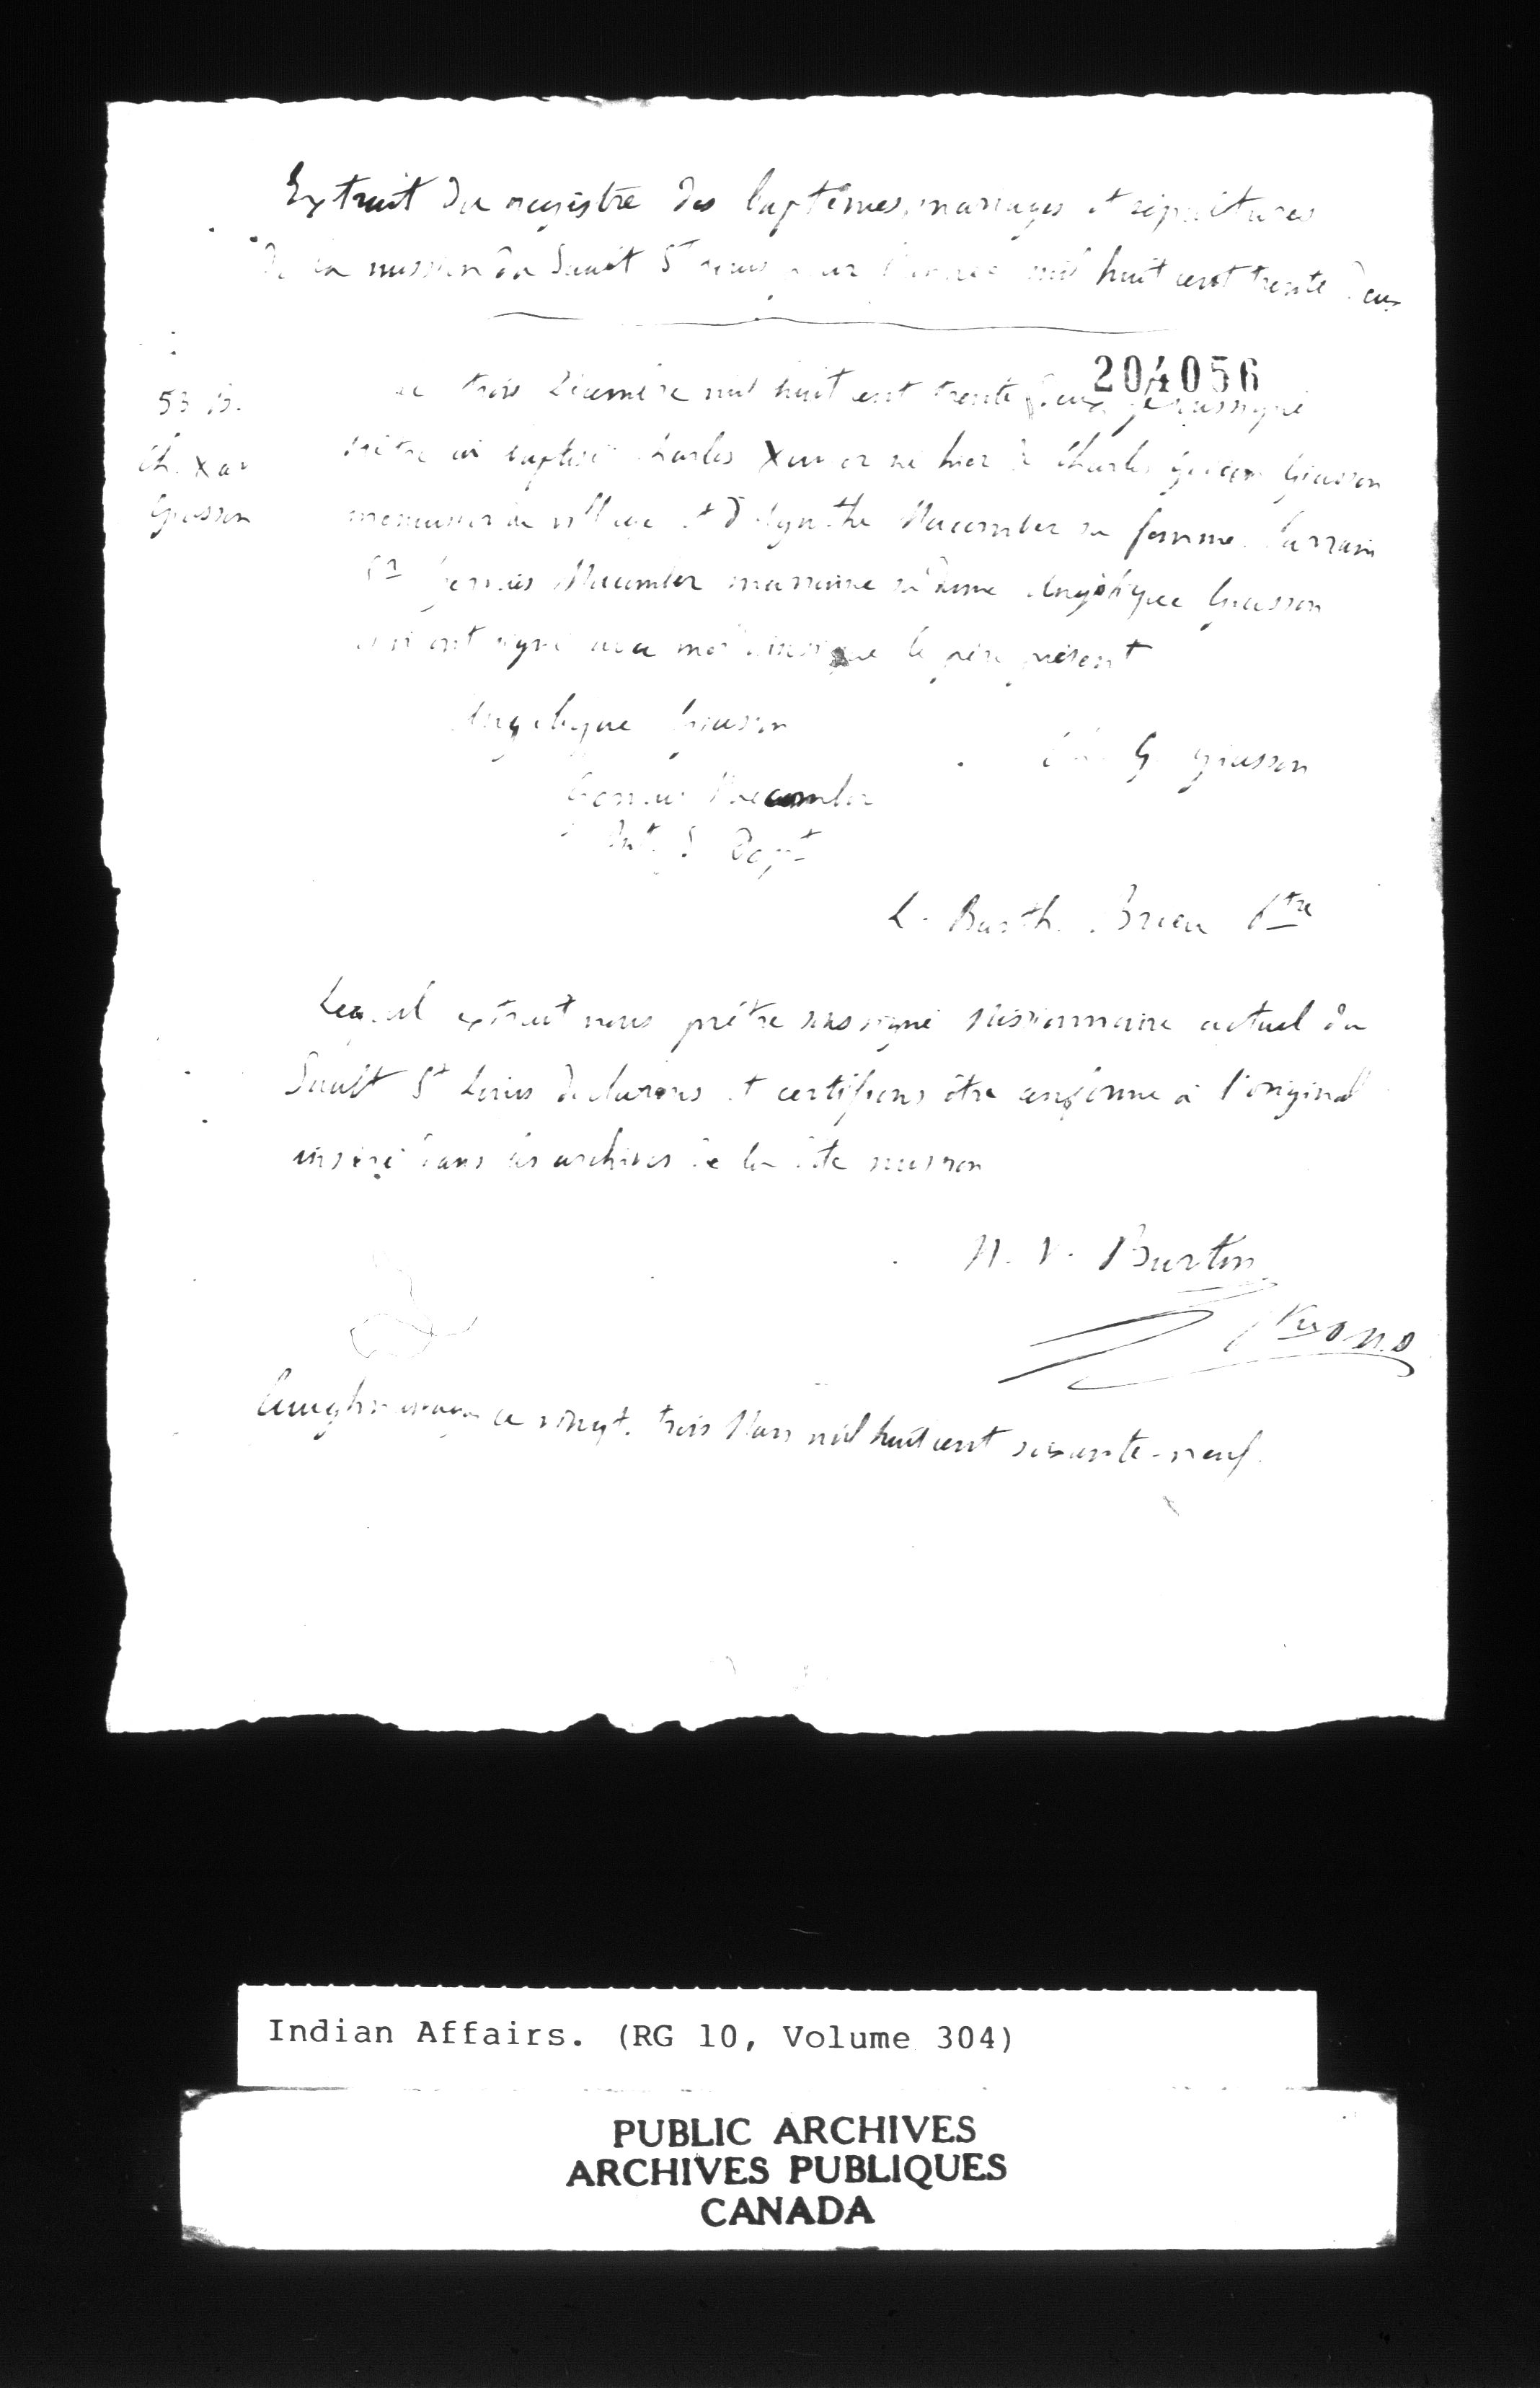 Extrait du registre des baptêmes, mariages et sépultures
de la mission du Sault St Louis pour l'année mil huit cent trente deux
204056
53 B.
Ch. Xav
Giasson
Le trois Décembre mil huit cent trente deux je soussigné
prêtre ai baptisé Charles Xavier né hier de Charles Giasson
menuisier de village et d'Agathe Macomber sa femme. Parrain
Macomber marraine Angélique Giasson
qui ont signé avec moi ainsi que le père présent
Angélique Giasson
Ch. G. Giasson
Macomber
L. Barth. Brien Ptre
Lequel extrait nous prêtre soussigné Missionnaire actuel du
Sault St Louis déclarons et certifions être conforme à l'original
inséré dans les archives de la dite mission
N. V. Burtin
Ptre O M I
Caughnawaga ce vingt-trois Mars mil huit cent soixante-neuf.
Indian Affairs. (RG 10, Volume 304)
PUBLIC ARCHIVES
ARCHIVES PUBLIQUES
CANADA